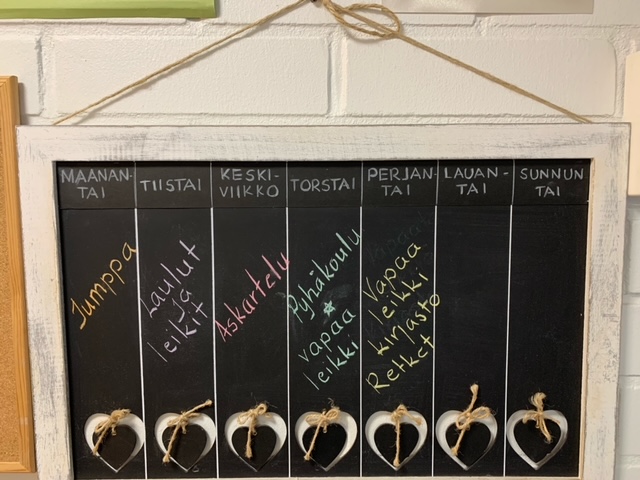 MAANAN-
TAI
TIISTAI
KESKI-
VIIKKO
TORSTAI
PERJAN-
TAI
LAUAN-
TAI
SUNNUN
TAI
Jumppa
Laulut
ja
leikit
Askartelu
Pyhäkoulu
*
vapaa
leikki
Vapaa
leikki
kirjasto
Retket